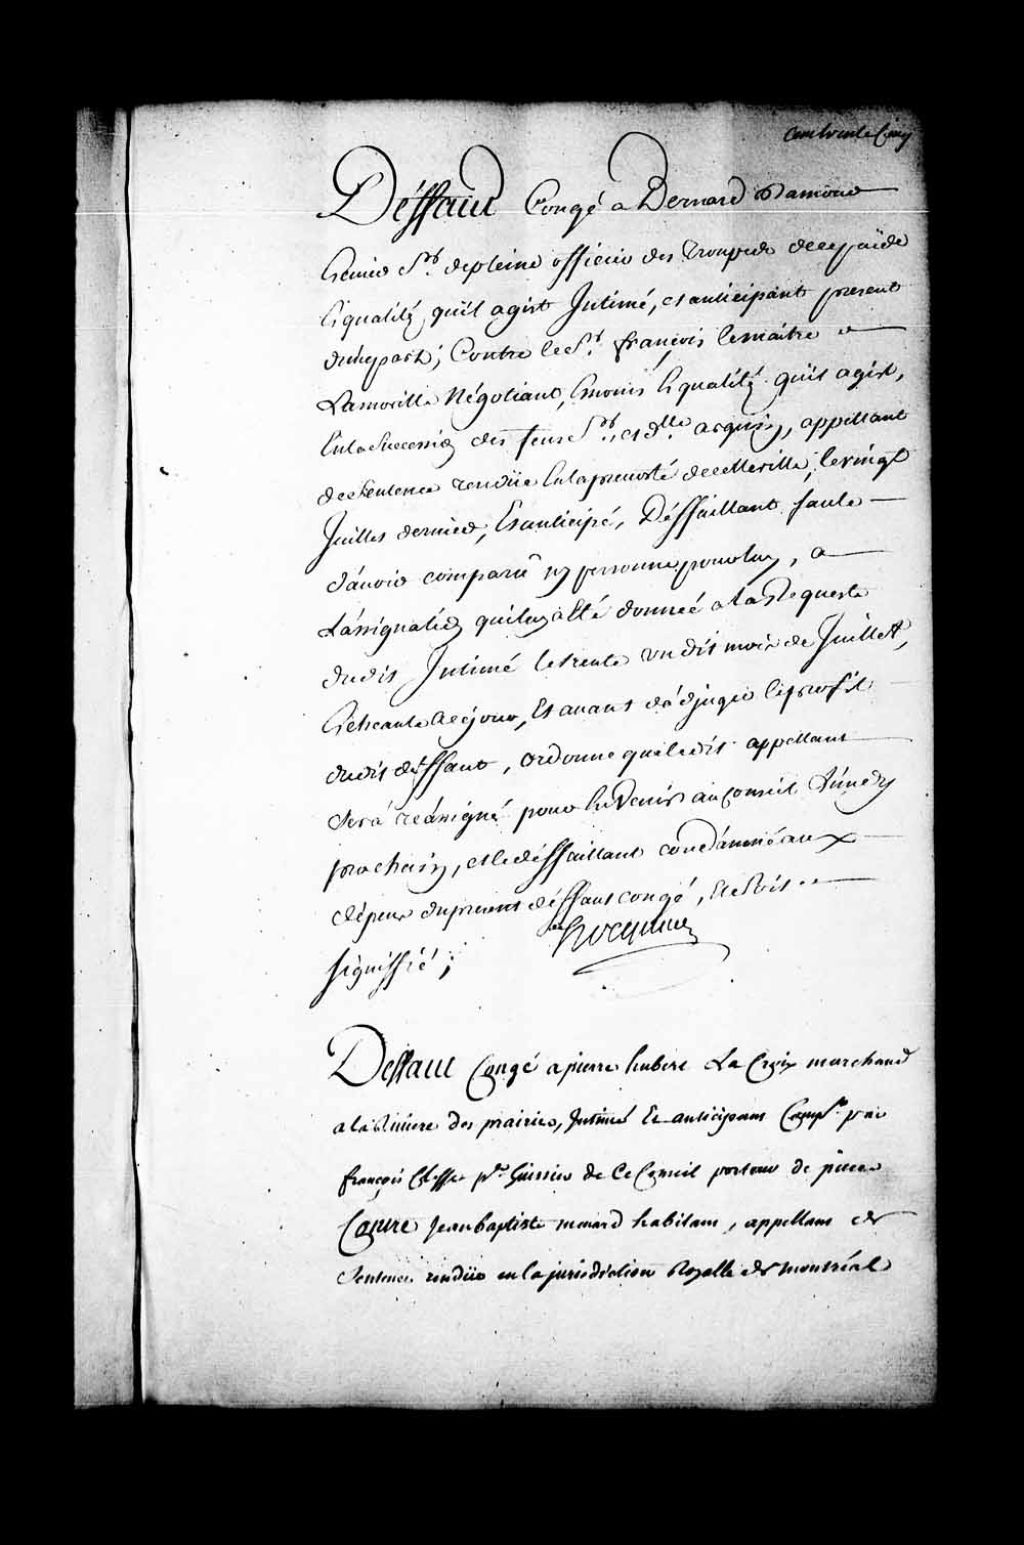 Cent trente Cinq
Déffaut Congé a Bernard Damours
Ecuier Sr. depleine officier des Troupes decepaïs de
Es qualités quil agist Intimé, et anticipant present
dunepart; Contre le Sr. françois lemaître
Lamorille Négotiant, Es noms Es qualités quil agist,
En la Succession des feux Sr. et dlle acquin, appellant
de Sentence renduë En la prevosté de cette ville, le vingt
Juillet dernier, Et anticipé, Déffaillant faute
d'avoir comparu ny personne pour luy, a
L'assignation qui luy a Eté donnée a la Requeste
dudit Intimé le trente un dudit mois de Juillet,
Echeante à ce jour, Et avant d'adjuger le profit
dudit déffaut, ordonne que ledit appellant
Sera réassigné pour En Venir au Conseil Lundy
prochain, et le déffaillant condamné aux
dépens du present déffaut congé, Et Soit
signiffié;
hocquart
Deffaut Congé a pierre hubert La Croix marchand
a la Riviere des prairies, Intimé Et anticipant Compt. par
françois Clesse pr. huissier de Ce Conseil porteur de pieces
Contre Jean baptiste menard habitant, appellant de
Sentence renduë en la jurisdiction Royalle de montréal